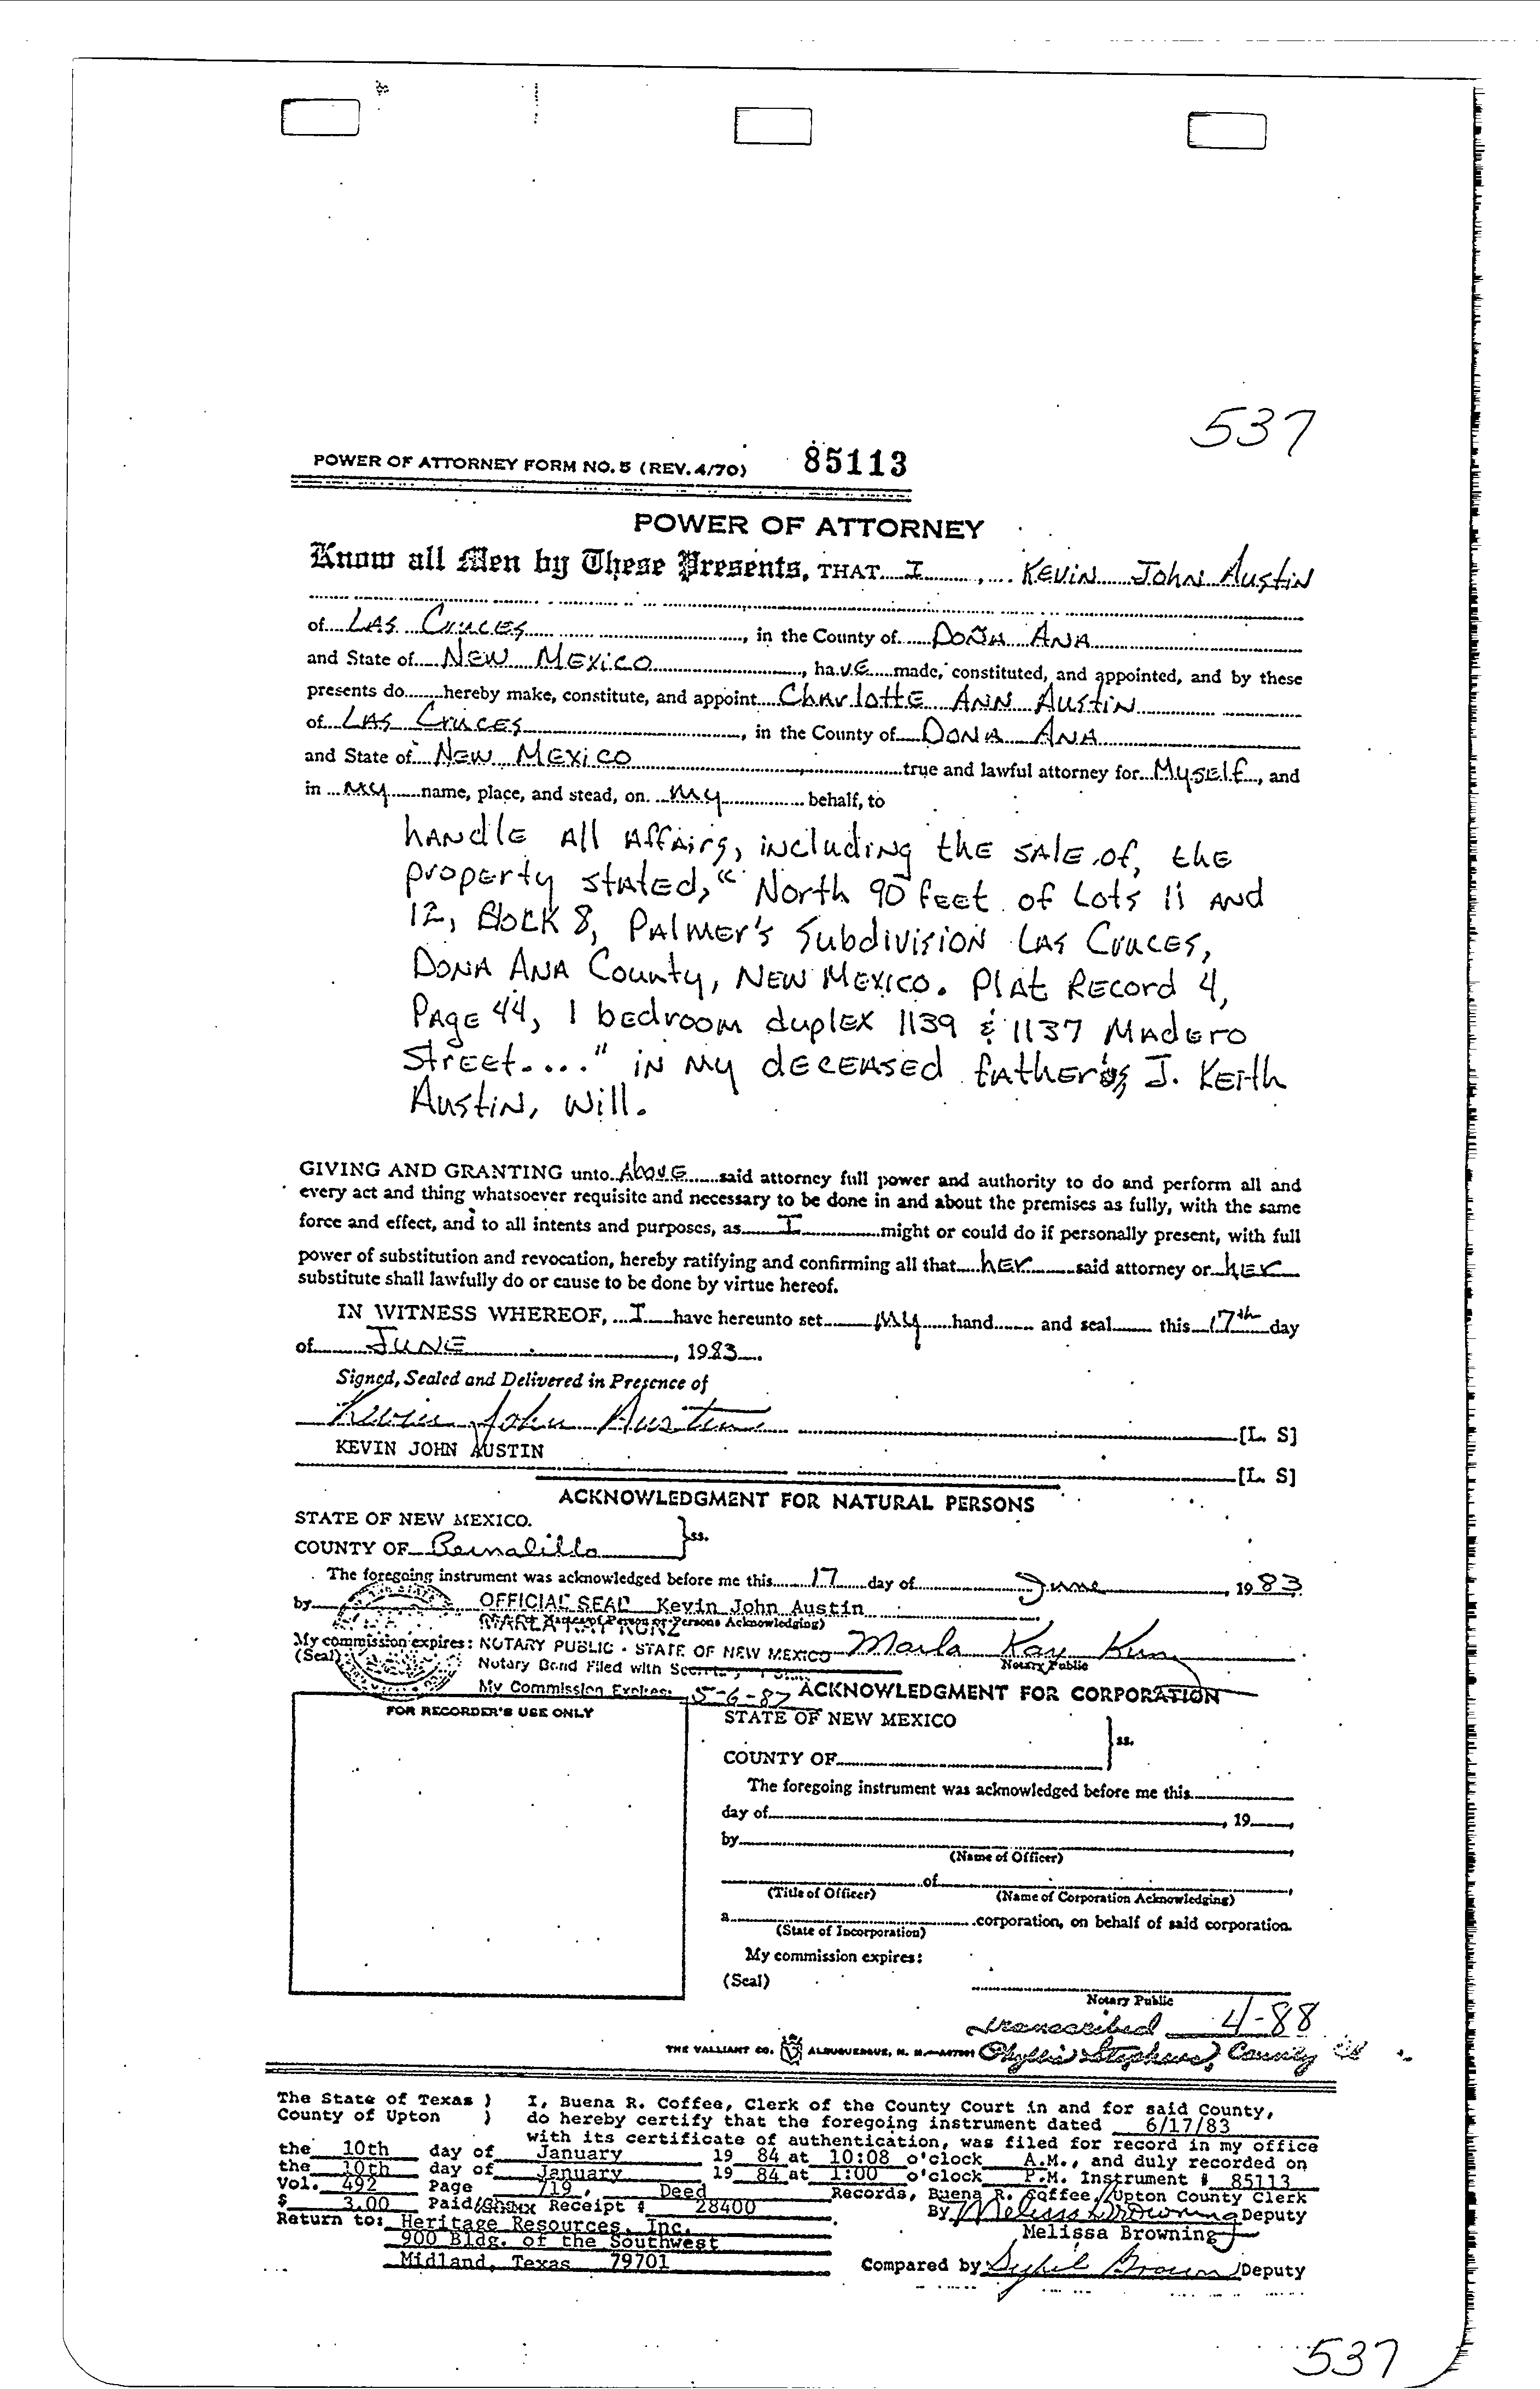 537
POWER OF ATTORNEY FORM NO. 5 (REV. 4/70) 85113
POWER OF ATTORNEY
Know all Men by These Presents, THAT I, KEVIN John Austin
of LAS CRUCES, in the County of DOÑA ANA
and State of NEW MEXICO, have made, constituted, and appointed, and by these
presents do hereby make, constitute, and appoint CharlottE ANN AUStiN
of LAS CRUCES, in the County of DONA ANA
and State of NEW MEXICO true and lawful attorney for MYSELF, and
in MY name, place, and stead, on MY behalf, to
HANdlE All AffAirs, iNcludiNg thE SAlE of, thE
property stAtEd, "North 90 feet of Lots 11 AND
12, BlocK 8, PAlMEr's SubdivisioN LAS CrucEs,
DONA ANA County, NEW MEXICO. PlAt REcord 4,
PAgE 44, 1 bEdrooM duplEX 1139 & 1137 MAdEro
StrEEt...." iN My dECEASEd father's, J. KEith
AUStiN, Will.
GIVING AND GRANTING unto AbovE said attorney full power and authority to do and perform all and
every act and thing whatsoever requisite and necessary to be done in and about the premises as fully, with the same
force and effect, and to all intents and purposes, as I might or could do if personally present, with full
power of substitution and revocation, hereby ratifying and confirming all that hEr said attorney or hEr
substitute shall lawfully do or cause to be done by virtue hereof.
IN WITNESS WHEREOF, I have hereunto set My hand and seal this 17th day
of JUNE, 1983.
Signed, Sealed and Delivered in Presence of
Kevin John Austin [L. S]
KEVIN JOHN AUSTIN
[L. S]
ACKNOWLEDGMENT FOR NATURAL PERSONS
STATE OF NEW MEXICO.
COUNTY OF Bernalillo }ss.
The foregoing instrument was acknowledged before me this 17 day of June, 1983
by OFFICIAL SEAL Kevin John Austin
MARLA KAY KUNZ (Name of Person or Persons Acknowledging)
My commission expires: NOTARY PUBLIC - STATE OF NEW MEXICO Marla Kay Kunz
(Seal) Notary Bond Filed with Secretary of State Notary Public
My Commission Expires: 5-6-87 ACKNOWLEDGMENT FOR CORPORATION
FOR RECORDER'S USE ONLY
STATE OF NEW MEXICO
COUNTY OF }ss.
The foregoing instrument was acknowledged before me this
day of , 19 ,
by
(Name of Officer)
of
(Title of Officer) (Name of Corporation Acknowledging)
a corporation, on behalf of said corporation.
(State of Incorporation)
My commission expires:
(Seal)
Notary Public
transcribed 4-88
THE VALLIANT CO. ALBUQUERQUE, N. M. Phyllis Stephens, County Clk
The State of Texas ) I, Buena R. Coffee, Clerk of the County Court in and for said County,
County of Upton ) do hereby certify that the foregoing instrument dated 6/17/83
with its certificate of authentication, was filed for record in my office
the 10th day of January 19 84 at 10:08 o'clock A.M., and duly recorded on
the 10th day of January 19 84 at 1:00 o'clock P.M. Instrument # 85113
Vol. 492 Page 719, Deed Records, Buena R. Coffee, Upton County Clerk
$ 3.00 Paid/ Receipt # 28400 By Melissa Browning Deputy
Return to: Heritage Resources, Inc. Melissa Browning
900 Bldg. of the Southwest
Midland, Texas 79701 Compared by Sybil Brown Deputy
537